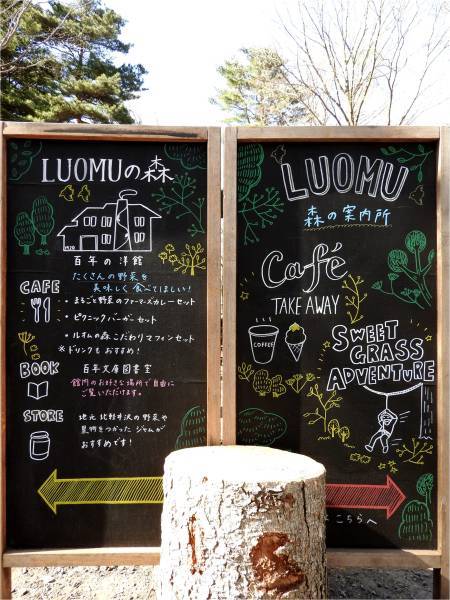 LUOMUの森
1920
百年の洋館
たくさんの野菜を
美味しく食べてほしい!
CAFE
・まるごと野菜のファーマーズカレーセット
・ピクニックバーガーセット
・ルオムの森こだわりマフィンセット
※ドリンクもおすすめ!
BOOK
百年文庫図書室
館内のお好きな場所で自由に
ご覧いただけます。
STORE
地元 北軽井沢の野菜や
果物をつかった ジャムが
おすすめです!
LUOMU
森の案内所
Café
TAKE AWAY
COFFEE
SWEET
GRASS
ADVENTURE
こちらへ